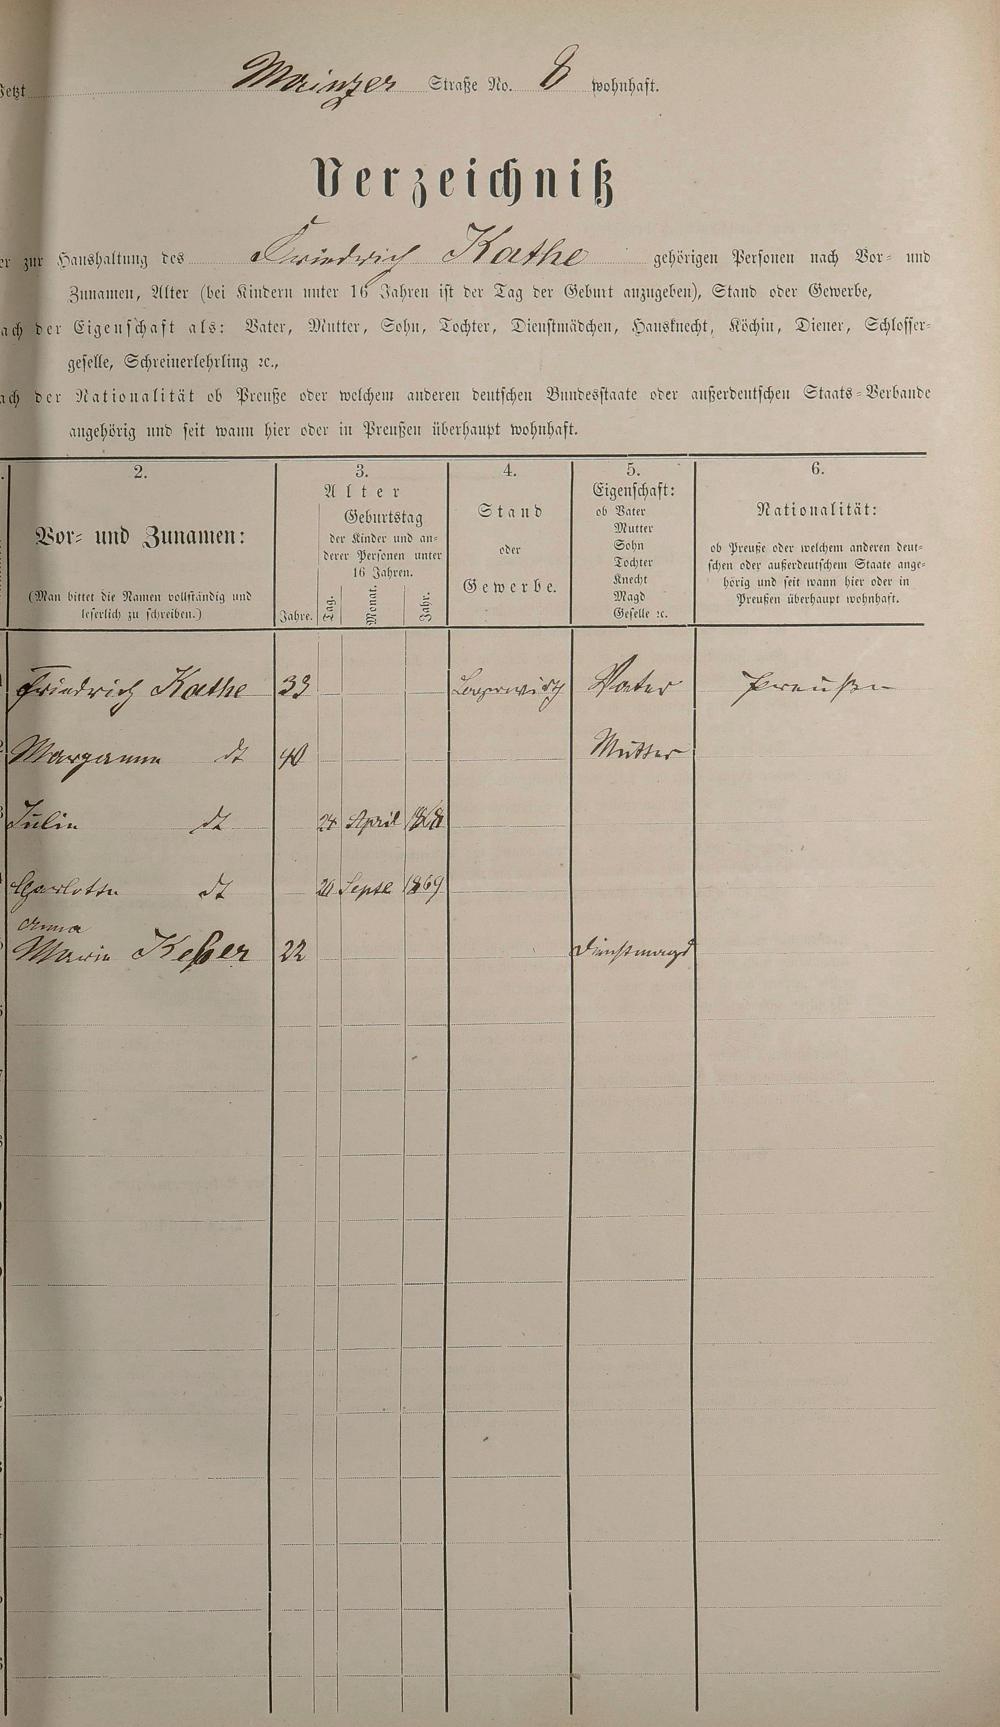 Jetzt Mainzer Straße No. 8 wohnhaft.
Verzeichniß
er zur Haushaltung des Friedrich Kathe gehörigen Personen nach Vor- und
Zunamen, Alter (bei Kindern unter 16 Jahren ist der Tag der Geburt anzugeben), Stand oder Gewerbe,
ach der Eigenschaft als: Vater, Mutter, Sohn, Tochter, Dienstmädchen, Hausknecht, Köchin, Diener, Schlosser-
geselle, Schreinerlehrling ꝛc.,
ach der Nationalität ob Preuße oder welchem anderen deutschen Bundesstaate oder außerdeutschen Staats-Verbande
angehörig und seit wann hier oder in Preußen überhaupt wohnhaft.
2. 3. 4. 5. 6.
Vor- und Zunamen:
(Man bittet die Namen vollständig und
leserlich zu schreiben.)
Alter
Geburtstag
der Kinder und an-
derer Personen unter
16 Jahren.
Jahre. Tag. Monat. Jahr.
Stand
oder
Gewerbe.
Eigenschaft:
ob Vater
Mutter
Sohn
Tochter
Knecht
Magd
Geselle ꝛc.
Nationalität:
ob Preuße oder welchem anderen deut-
schen oder außerdeutschem Staate ange-
hörig und seit wann hier oder in
Preußen überhaupt wohnhaft.
Friedrich Kathe 33 Vater Preußen
dt 40 Mutter
Julie dt April 1868
Charlotte dt Septe 1869
Anna
Marie Keßer 22 Dienstmagd